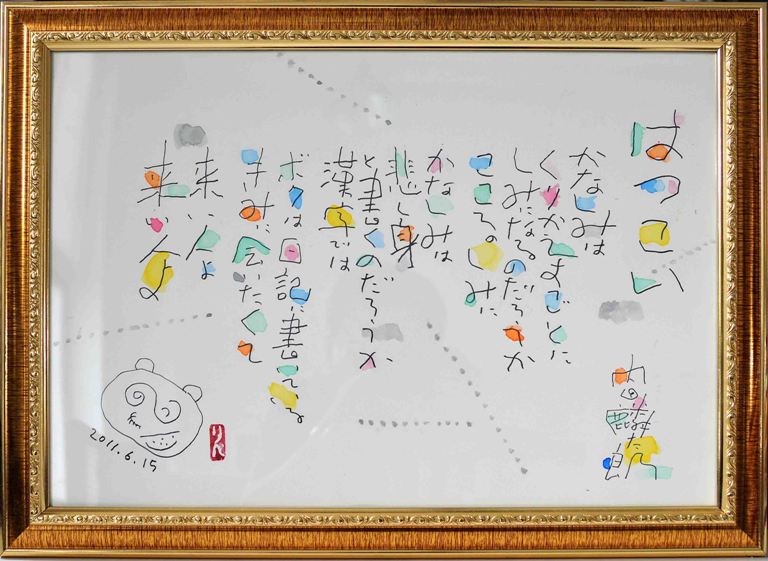 はつこい
内田麟太郎
かなしみは
くりかえすごとに
しみになるのだろうか
こころのしみに
かなしみは
悲し身
と書くのだろうか
漢字では
ボクは日記に書いている
きみに会いたくて
来い人よ
来い人よ
2011.6.15
りん